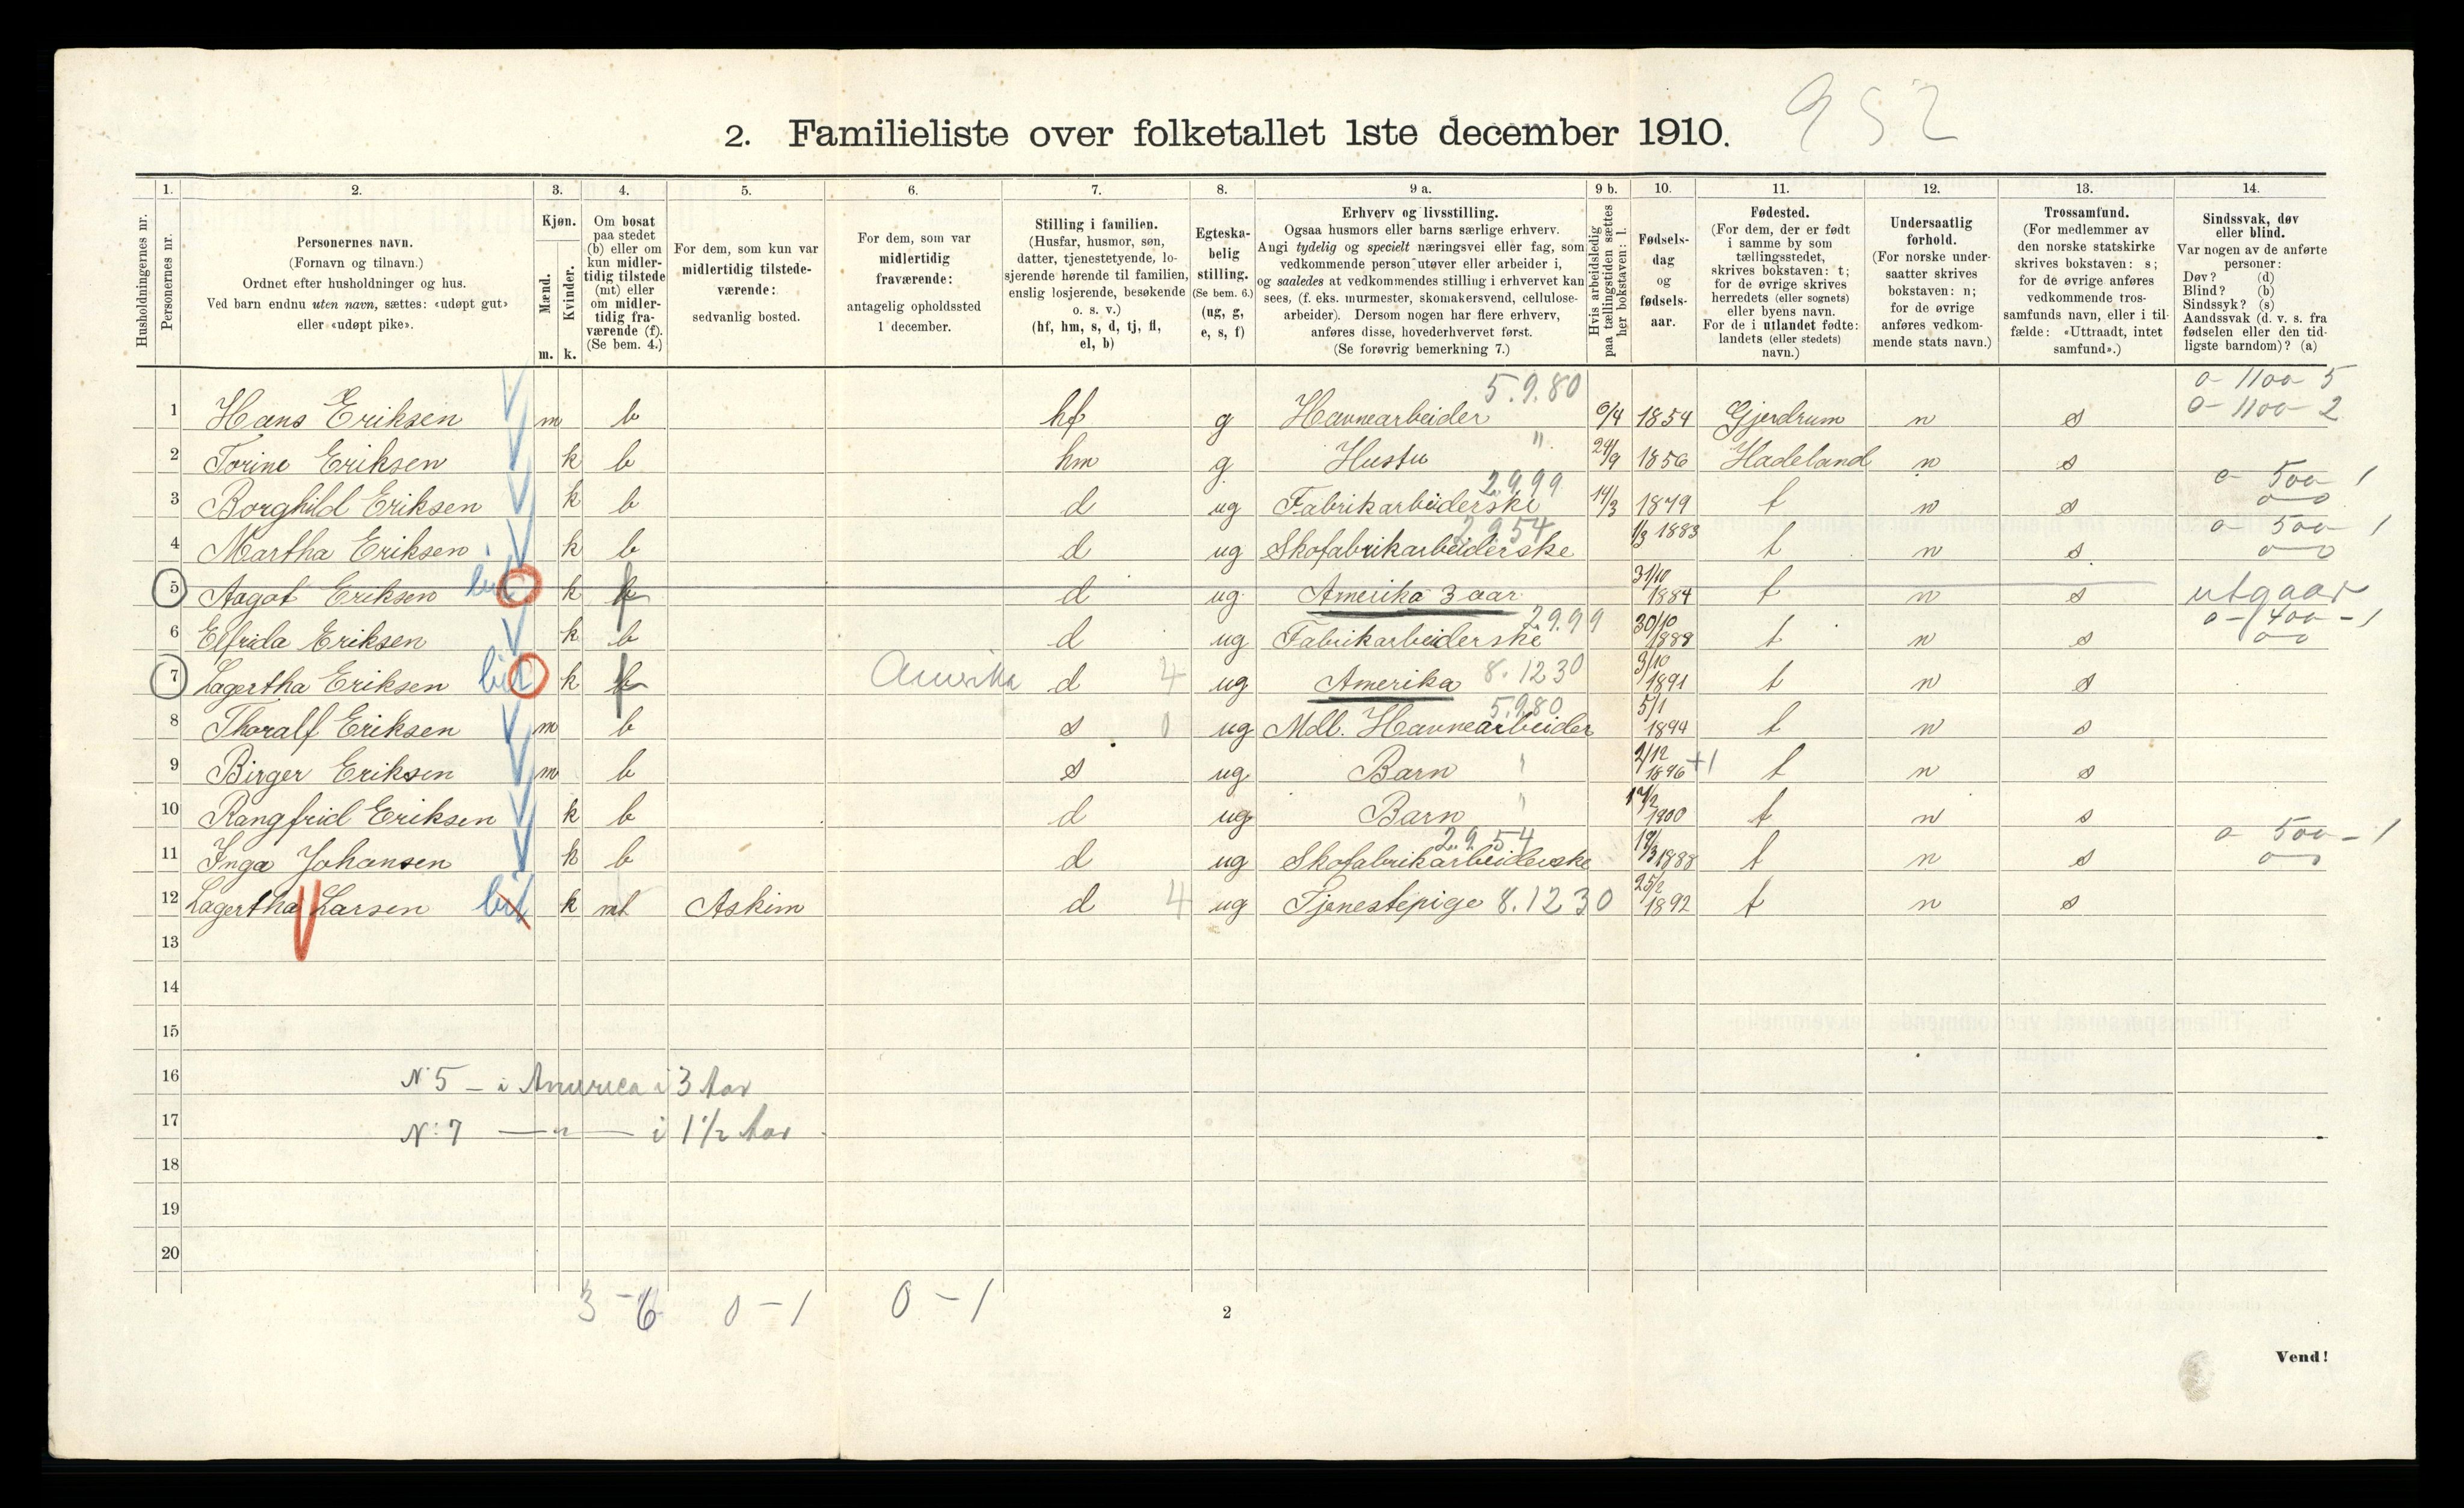 952
2. Familieliste over folketallet 1ste december 1910.
Husholdningernes nr.
1. Personernes nr.
2. Personernes navn. (Fornavn og tilnavn.) Ordnet efter husholdninger og hus. Ved barn endnu uten navn, sættes: «udøpt gut» eller «udøpt pike».
3. Kjøn. Mænd. m. Kvinder. k.
4. Om bosat paa stedet (b) eller om kun midlertidig tilstede (mt) eller om midlertidig fraværende (f). (Se bem. 4.)
5. For dem, som kun var midlertidig tilstedeværende: sedvanlig bosted.
6. For dem, som var midlertidig fraværende: antagelig opholdssted 1 december.
7. Stilling i familien. (Husfar, husmor, søn, datter, tjenestetyende, losjerende hørende til familien, enslig losjerende, besøkende o. s. v.) (hf, hm, s, d, tj, fl, el, b)
8. Egteskabelig stilling. (Se bem. 6.) (ug, g, e, s, f)
9 a. Erhverv og livsstilling. Ogsaa husmors eller barns særlige erhverv. Angi tydelig og specielt næringsvei eller fag, som vedkommende person utøver eller arbeider i, og saaledes at vedkommendes stilling i erhvervet kan sees, (f. eks. murmester, skomakersvend, cellulosearbeider). Dersom nogen har flere erhverv, anføres disse, hovederhvervet først. (Se forøvrig bemerkning 7.)
9 b. Hvis arbeidsledig paa tællingstiden sættes her bokstaven: l.
10. Fødselsdag og fødselsaar.
11. Fødested. (For dem, der er født i samme by som tællingsstedet, skrives bokstaven: t; for de øvrige skrives herredets (eller sognets) eller byens navn. For de i utlandet fødte: landets (eller stedets) navn.)
12. Undersaatlig forhold. (For norske undersaatter skrives bokstaven: n; for de øvrige anføres vedkommende stats navn.)
13. Trossamfund. (For medlemmer av den norske statskirke skrives bokstaven: s; for de øvrige anføres vedkommende trossamfunds navn, eller i tilfælde: «Uttraadt, intet samfund».)
14. Sindssvak, døv eller blind. Var nogen av de anførte personer: Døv? (d) Blind? (b) Sindssyk? (s) Aandssvak (d. v. s. fra fødselen eller den tidligste barndom)? (a)
5.9.80 0-1100 5
1 Hans Eriksen m b hf g Havnearbeider 6/4 1854 Gjerdrum n s 0-1100-2
2 Torine Eriksen k b hm g Hustu " 24/9 1856 Hadeland n s
3 Borghild Eriksen k b d ug Fabrikarbeiderske 29.99 14/3 1879 t n s 0 500 1
4 Martha Eriksen k b d ug Skofabrikarbeiderske 2954 1/3 1883 t n s 0 500 1
5 Aagot Eriksen k f d ug Amerika 3 aar 31/10 1884 t n s utgaar
6 Elfrida Eriksen k b d ug Fabrikarbeiderske 29.99 30/10 1888 t n s 0-400-1
7 Lagertha Eriksen k f Amerika d 4 ug Amerika 8.1230 3/10 1891 t n s
8 Thoralf Eriksen m b s 0 ug Mdl. Havnearbeider 5.9.80 5/1 1894 t n s
9 Birger Eriksen m b s ug Barn " 2/12 1896 +1 t n s
10 Rangfrid Eriksen k b d ug Barn " 1900 t n s
11 Inga Johansen k b d ug Skofabrikarbeiderske 29.54 1888 t n s 0 500-1
12 Lagertha Larsen k mt Askim d 4 ug Tjenestepige 8.1230 25/2 1892 t n s
13
14
15
16 N 5 - i America i 3 Aar
17 N: 7 —"— i 1 1/2 Aar
18
19
20
3-6 0-1 0-1
2
Vend!